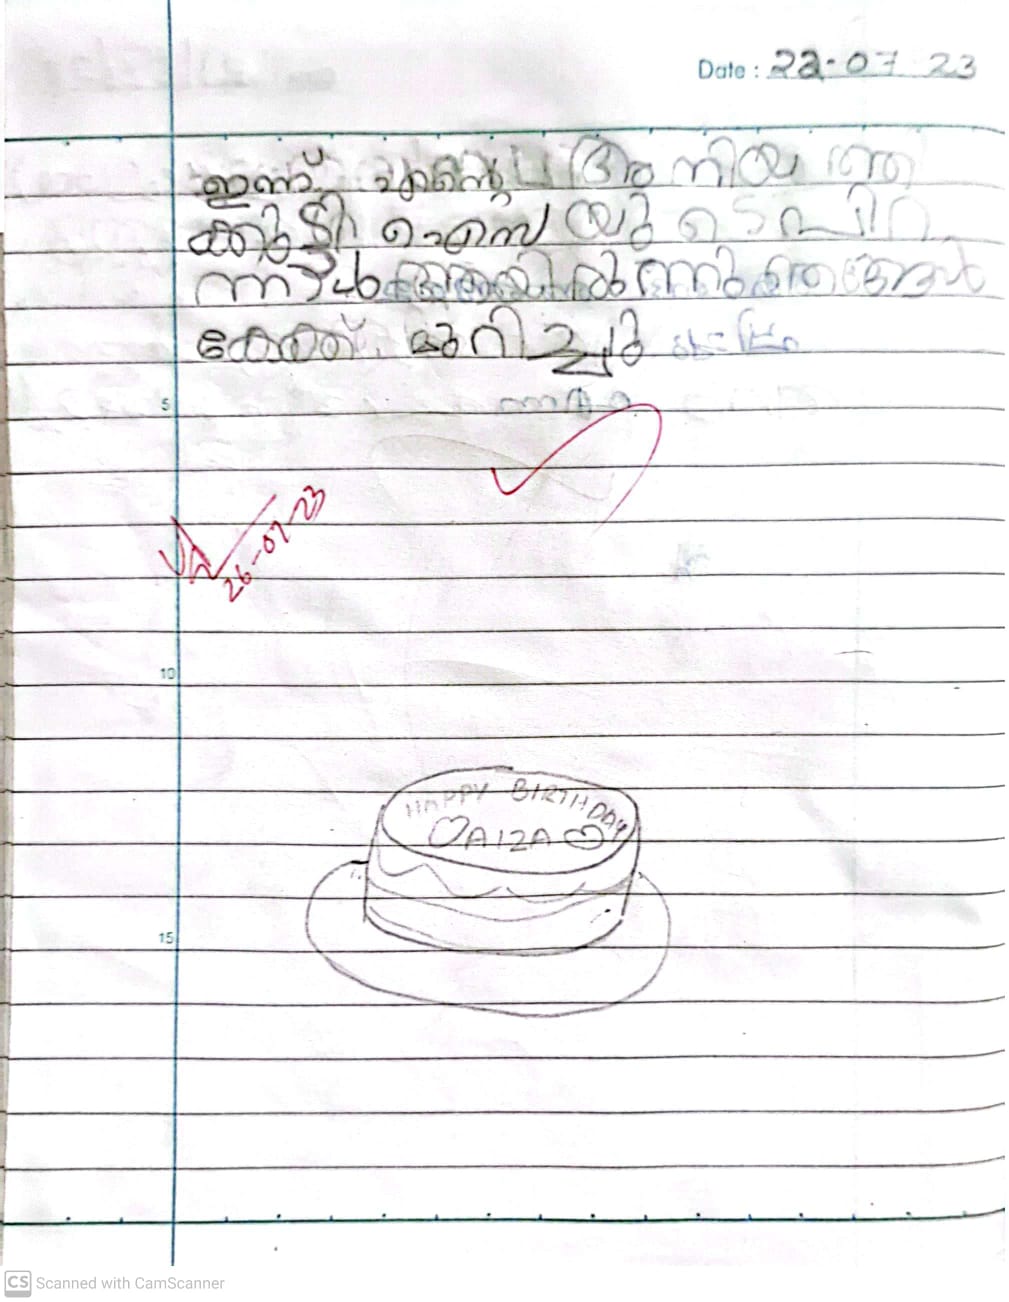 Date : 22-07 23
ഇന്ന് എന്റെ അനിയത്തി
ക്കുട്ടി ഐസ യുടെ പിറ
ന്നാൾ ആയിരുന്നു ഞങ്ങൾ
കേക്ക് മുറിച്ചു
5
26-07-23
10
HAPPY BIRTHDAY
AIZA
15
CS Scanned with CamScanner